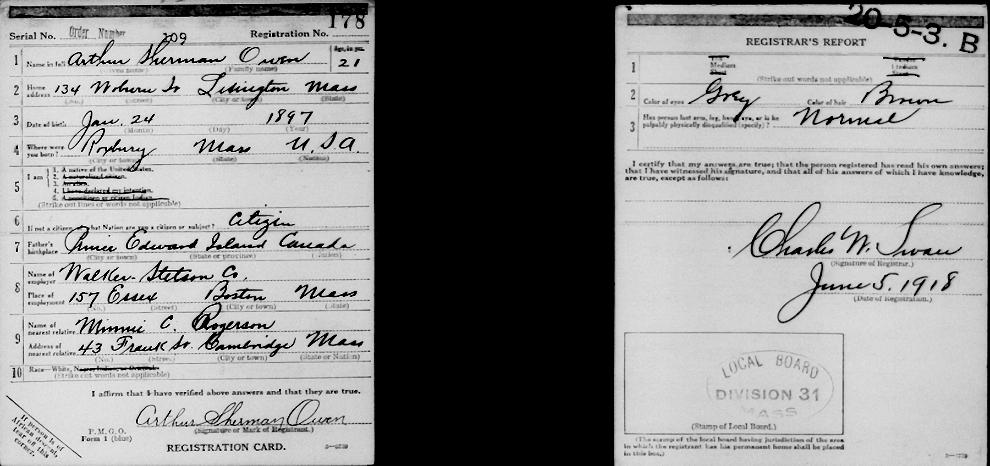 178
Serial No. Order Number 209 Registration No.
1 Name in full Arthur Sherman Owen Age, in yrs. 21
(Given name) (Family name)
2 Home address 134 Woburn St Lexington Mass
(No.) (Street) (City or town) (State)
3 Date of birth Jan. 24 1897
(Month) (Day) (Year)
4 Where were you born? Roxbury Mass U.S.A.
(City or town) (State) (Nation)
5 I am
1. A native of the United States.
2. A naturalized citizen.
3. An alien.
4. I have declared my intention.
5. A noncitizen or citizen Indian.
(Strike out lines or words not applicable)
6 If not a citizen of what Nation are you a citizen or subject? Citizen
7 Father's birthplace Prince Edward Island Canada
(City or town) (State or province) (Nation)
8 Name of employer Walker-Stetson Co.
Place of employment 157 Essex Boston Mass
(No.) (Street) (City or town) (State)
9 Name of nearest relative Minnie C. Rogerson
Address of nearest relative 43 Frank St. Cambridge Mass
(No.) (Street) (City or town) (State or Nation)
10 Race—White,
(Strike out words not applicable)
I affirm that I have verified above answers and that they are true.
Arthur Sherman Owen
(Signature or Mark of Registrant.)
P. M. G. O.
Form 1 (blue)
REGISTRATION CARD.
If person is of
African descent,
tear off this
corner.
20-5-3. B
REGISTRAR'S REPORT
1 Tall
Medium
Short
Slender
Medium
Stout
(Strike out words not applicable)
2 Color of eyes Grey Color of hair Brown
3 Has person lost arm, leg, hand, eye, or is he palpably physically disqualified (specify)? Normal
I certify that my answers are true; that the person registered has read his own answers;
that I have witnessed his signature, and that all of his answers of which I have knowledge,
are true, except as follows:
Charles W. Swan
(Signature of Registrar.)
June 5, 1918
(Date of Registration.)
LOCAL BOARD
DIVISION 31
MASS
(Stamp of Local Board.)
(The stamp of the local board having jurisdiction of the area
in which the registrant has his permanent home shall be placed
in this box.)